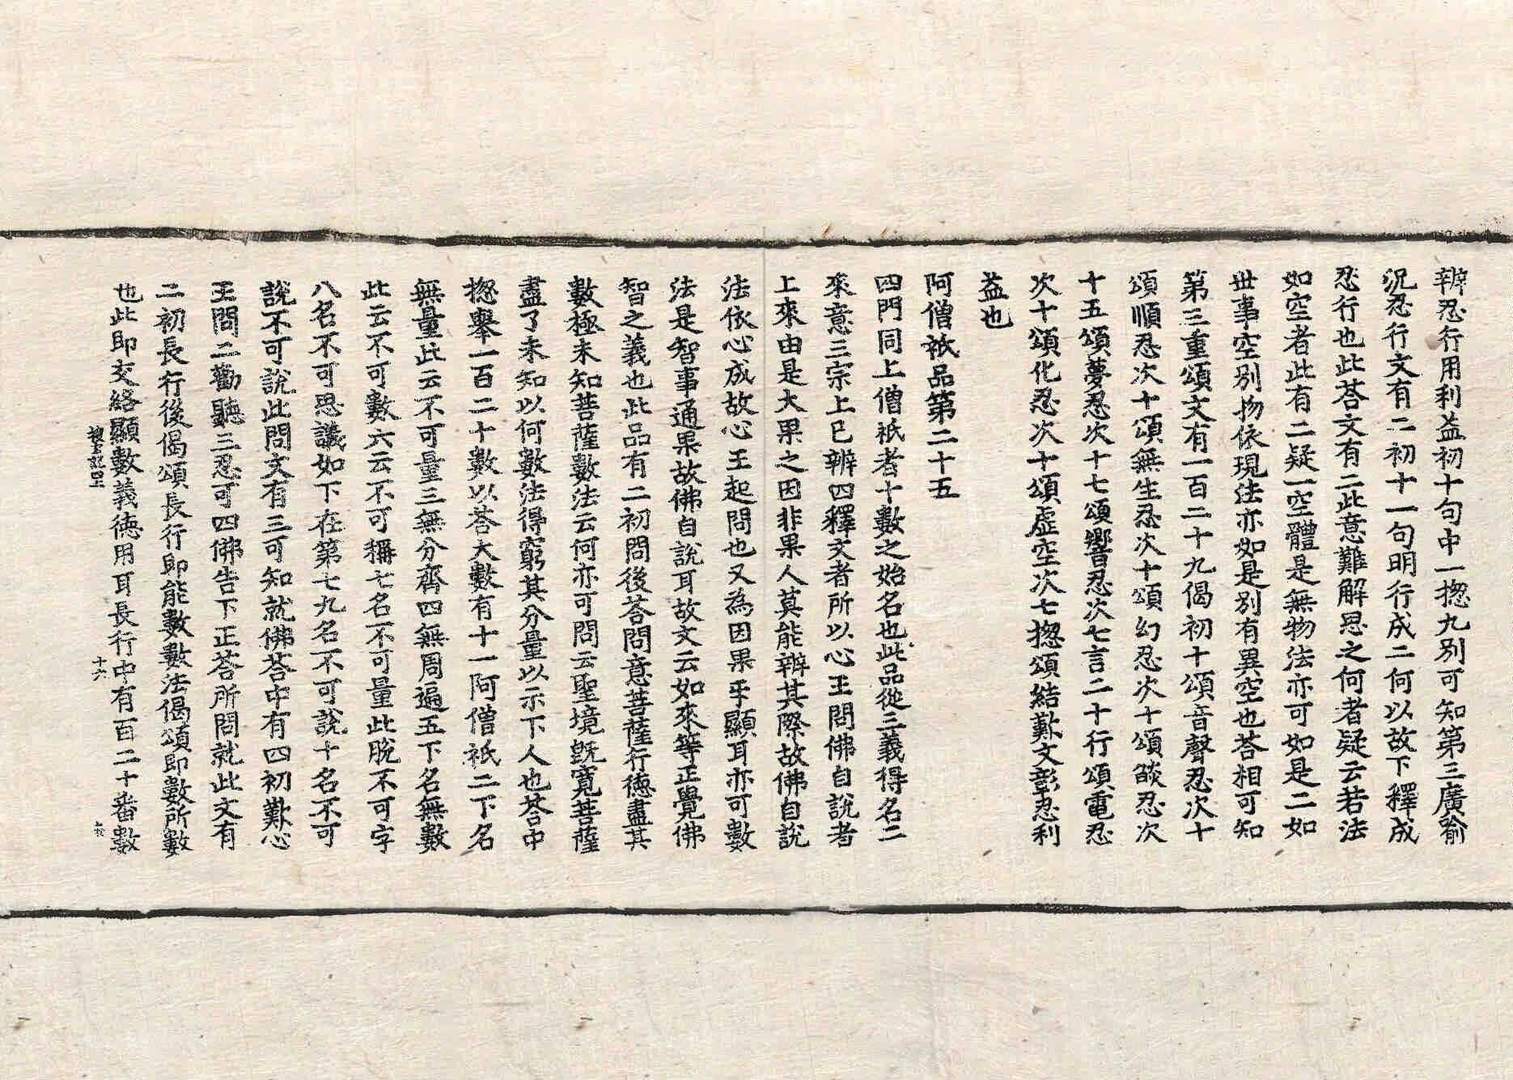 辨忍行用利益初十句中一揔九別可知第三廣喻
況忍行文有二初十一句明行成二何以故下釋成
忍行也此荅文有二此意難解思之何者疑云若法
如空者此有二疑一空體是無物法亦可如是二如
世事空別物依現法亦如是別有異空也荅相可知
第三重頌文有一百二十九偈初十頌音聲忍次十
頌順忍次十頌無生忍次十頌幻忍次十頌燄忍次
十五頌夢忍次十七頌響忍次七言二十行頌電忍
次十頌化忍次十頌虛空次七揔頌結歎文彰忍利
益也
阿僧祇品第二十五
四門同上僧祇者十數之始名也此品從三義得名二
來意三宗上已辨四釋文者所以心王問佛自說者
上來由是大果之因非果人莫能辨其際故佛自說
法依心成故心王起問也又為因果乎顯耳亦可數
法是智事通果故佛自說耳故文云如來等正覺佛
智之義也此品有二初問後荅問意菩薩行德盡其
數極未知菩薩數法云何亦可問云聖境旣寬菩薩
盡了未知以何數法得窮其分量以示下人也荅中
揔舉一百二十數以荅大數有十一阿僧祇二下名
無量此云不可量三無分齊四無周遍五下名無數
此云不可數六云不可稱七名不可量此脫不可字
八名不可思議如下在第七九名不可說十名不可
說不可說此問文有三可知就佛荅中有四初歎心
王問二勸聽三忍可四佛告下正荅所問就此文有
二初長行後偈頌長行即能數數法偈頌即數所數
也此即交絡顯數義德用耳長行中有百二十番數
十六